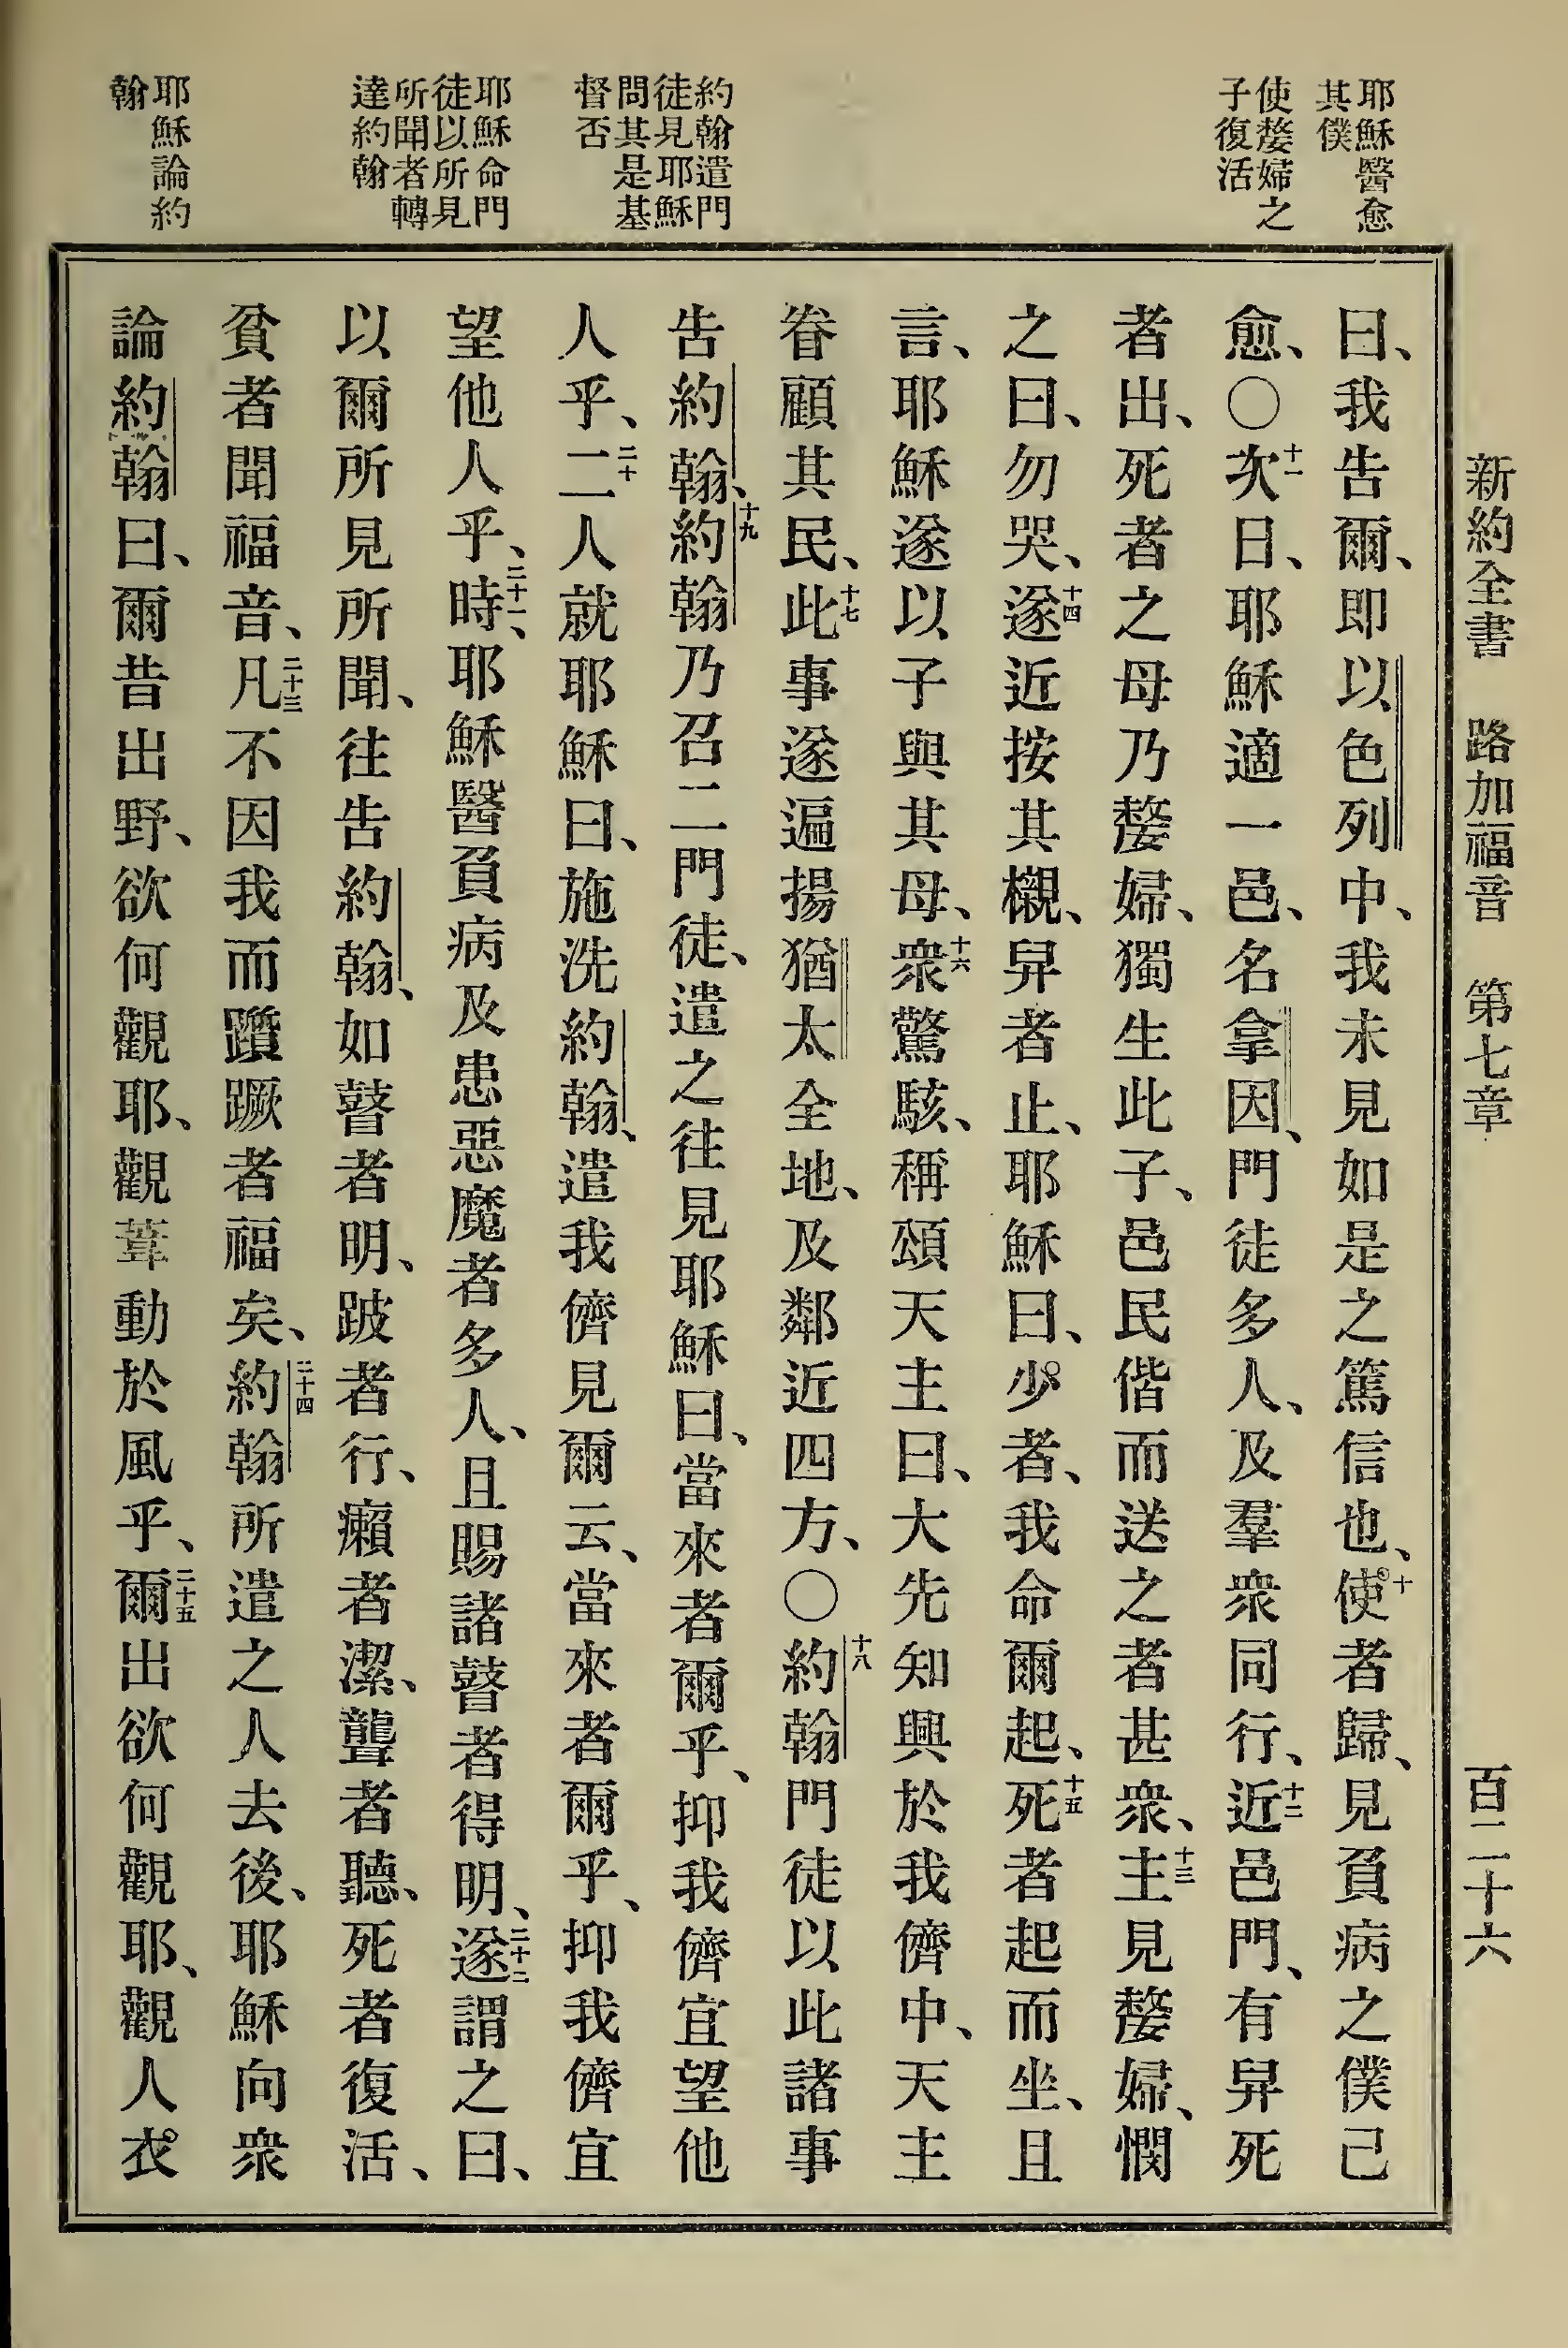 新約全書 路加福音 第七章 百二十六
耶穌醫愈
其僕
使嫠婦之
子復活
約翰遣門
徒見耶穌
問其是基
督否
耶穌命門
徒以所見
所聞者轉
達約翰
耶穌論約
翰
曰、我告爾、即以色列中、我未見如是之篤信也、十使者歸、見負病之僕已
愈、○十一次日、耶穌適一邑、名拿因、門徒多人、及羣衆同行、十二近邑門、有舁死
者出、死者之母乃嫠婦、獨生此子、邑民偕而送之者甚衆、十三主見嫠婦、憫
之曰、勿哭、十四遂近按其櫬、舁者止、耶穌曰、少者、我命爾起、十五死者起而坐、且
言、耶穌遂以子與其母、十六衆驚駭、稱頌天主曰、大先知興於我儕中、天主
眷顧其民、十七此事遂遍揚猶太全地、及鄰近四方、○十八約翰門徒以此諸事
告約翰、十九約翰乃召二門徒、遣之往見耶穌曰、當來者爾乎、抑我儕宜望他
人乎、二十二人就耶穌曰、施洗約翰、遣我儕見爾云、當來者爾乎、抑我儕宜
望他人乎、二十一時、耶穌醫負病及患惡魔者多人、且賜諸瞽者得明、二十二遂謂之曰、
以爾所見所聞、往告約翰、如瞽者明、跛者行、癩者潔、聾者聽、死者復活、
貧者聞福音、二十三凡不因我而躓蹶者福矣、二十四約翰所遣之人去後、耶穌向衆
論約翰曰、爾昔出野、欲何觀耶、觀葦動於風乎、二十五爾出欲何觀耶、觀人衣